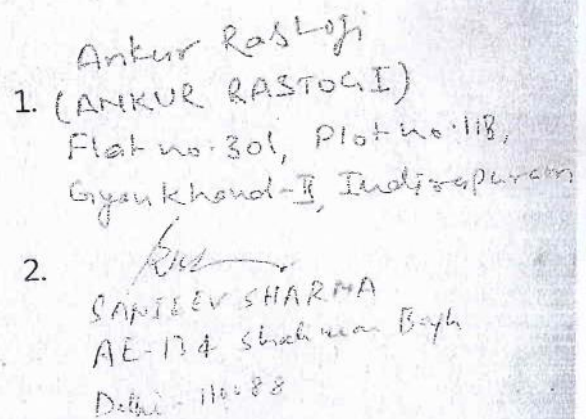 Ankur Rastogi
1. (ANKUR RASTOGI)
Flat no. 301, Plot no. 11B,
Gyankhand-II, Indirapuram
2.
SANJEEV SHARMA
AE-134 Shalimar Bagh
Delhi - 110088